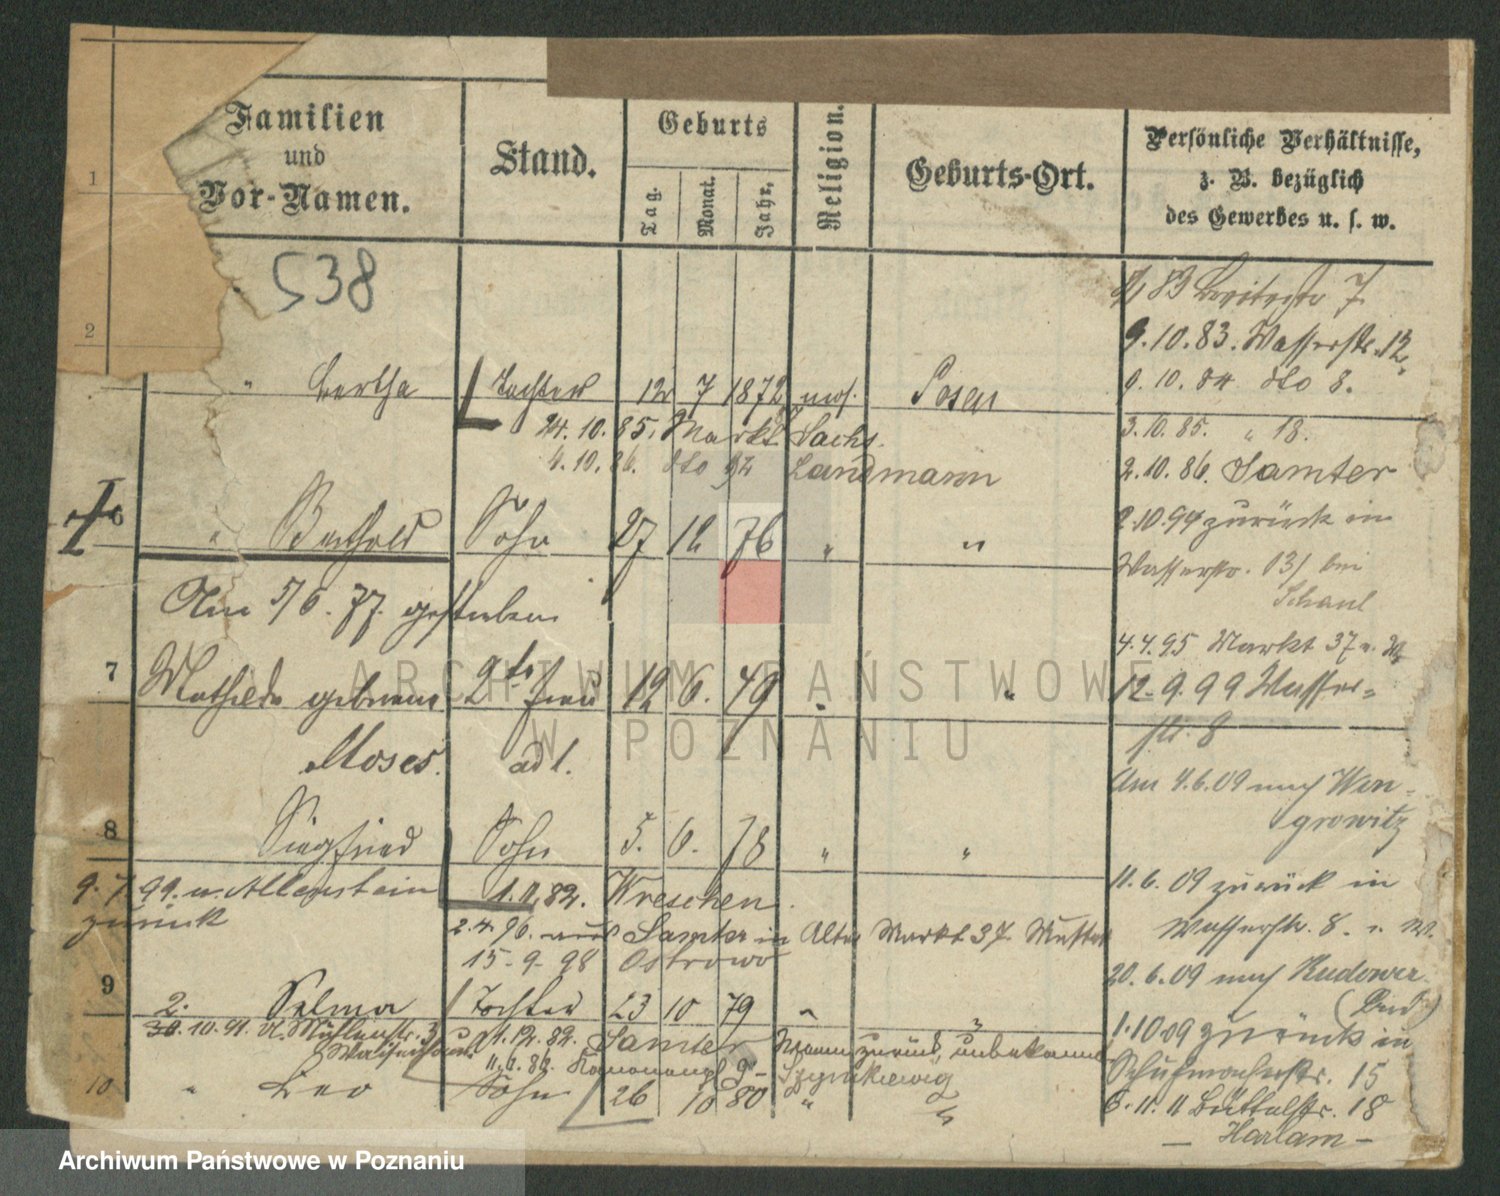 Familien
und
Vor-Namen.
Stand.
Geburts
Tag.
Monat.
Jahr.
Religion.
Geburts-Ort.
Persönliche Verhältnisse,
z. B. bezüglich
des Gewerbes u. s. w.
1
2
538
83 7
9.10.83. Wasserstr. 12,
10.84 dto 8.
" Bertha Tochter 12 7 1872 mos. Posen
24.10.85. Markt Sachs.
3.10.85. " 18.
4.10.86. dto 92 Landmann
2.10.86. Samter
6 " Berthold Sohn 27 12 76 " "
2.10.94 zurück in
Wasserstr. 13/ bei
Schaul
Am 5/6. 77. gestorben
4.4.95 Markt 37 u. W
7 Mathilde geborene 2te Frau 12 6. 49 " "
12.9.99 Wasser-
str. 8
Moses. adl.
Am 4.6.09 nach Won-
growitz
8 Siegfried Sohn 5. 6. 78 " "
9.7.99. n. Allenstein
zurück
1.11.82. Wreschen.
11.6.09 zurück in
Wasserstr. 8. u. W.
2.4.96. aus Samter in Alter Markt 37. Mutter
15-9-98 Ostrowo
20.6.09 nach Kudower
(Bad)
9 2. Selma Tochter 23 10 79 "
30.10.91. Mühlenstr. 3
Waisenhaus
1.12.82. Samter zurück, unbekannt
1.10.09 zurück in
Schuhmacherstr. 15
11.6.86. Kanonenpl 9-
10 " Leo Sohn 26 10 80 " "
6.11.11 Büttelstr. 18
- Harlam -
ARCHIWUM PAŃSTWOWE
W POZNANIU
Archiwum Państwowe w Poznaniu